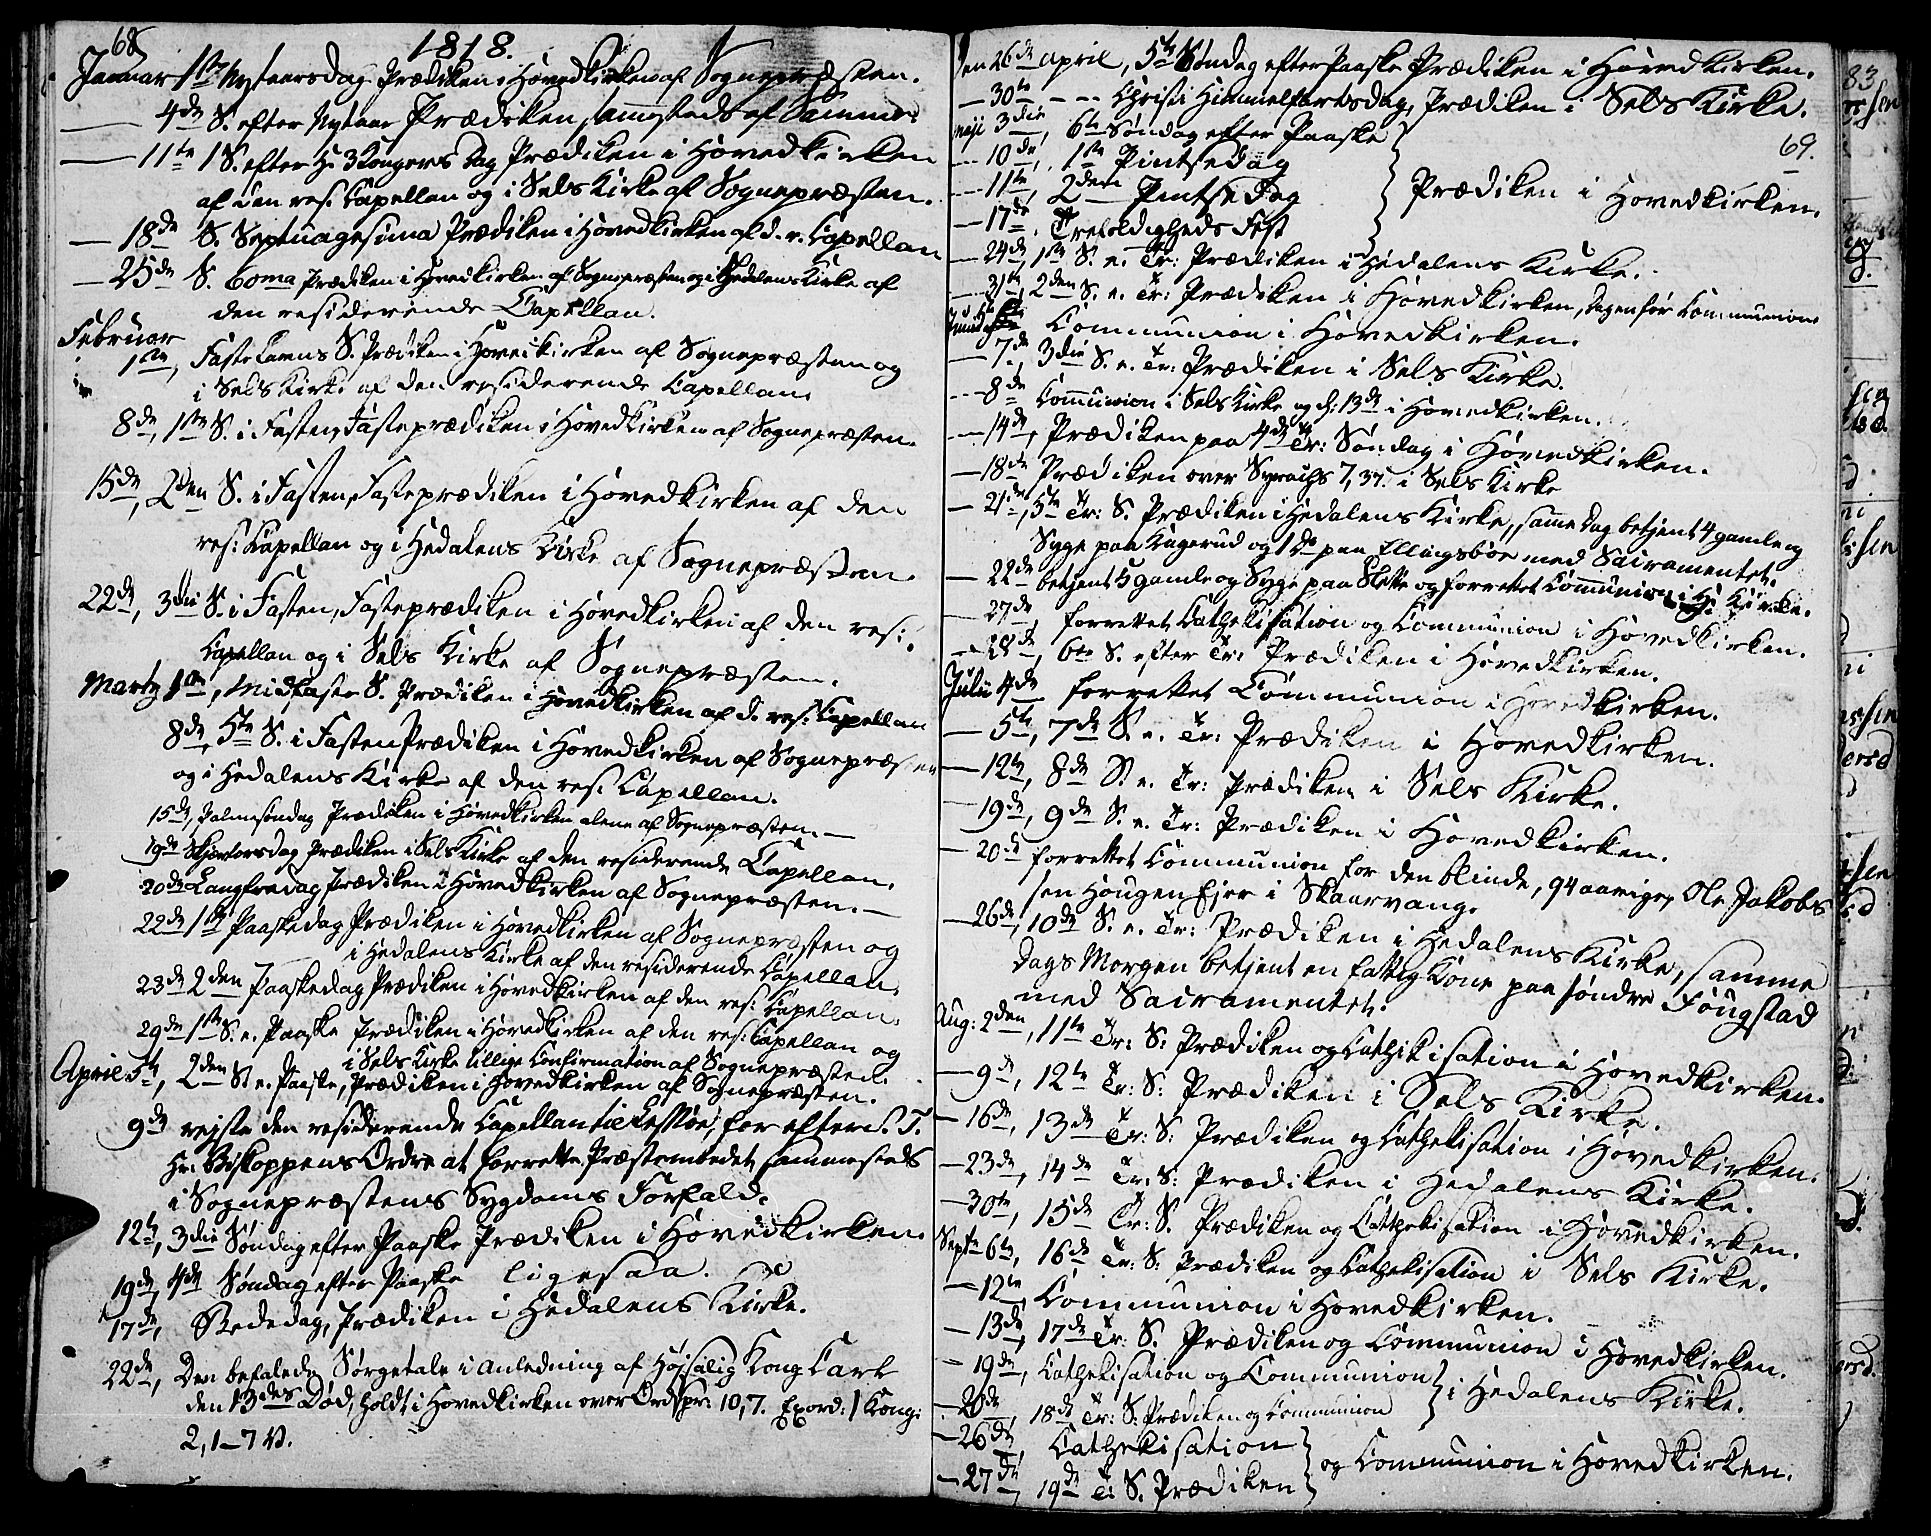 68
1818.
Januar 1ste Nytaarsdag Prædiken i Hovedkirken af Sognepræsten.
— 4de S. efter Nytaar Prædiken sammesteds af Samme.
— 11te 1 S. efter H. 3 Kongers Dag Prædiken i Hovedkirken
af den res: Capellan og i Sels Kirke af Sognepræsten.
— 18de S. Septuagesima Prædiken i Hovedkirken af d. r. Capellan
— 25de S. 60ma Prædiken i Hovedkirken af Sognepræsten og i Hedalens Kirke af
den residerende Capellan.
Februar
1ste, Fastelavns S. Prædiken i Hovedkirken af Sognepræsten og
i Sels Kirke af den residerende Capellan.
8de, 1ste S. i Fasten, Fasteprædiken i Hovedkirken af Sognepræsten.
15de, 2den S. i Fasten, Fasteprædiken i Hovedkirken af den
res: Capellan og i Hedalens Kirke af Sognepræsten.
22de, 3die S. i Fasten, Fasteprædiken i Hovedkirken af den res:
Capellan og i Sels Kirke af Sognepræsten.
Marty 1ste, Midfaste S. Prædiken i Hovedkirken af d. res: Capellan
8de, 5te S. i Fasten Prædiken i Hovedkirken af Sognepræsten
og i Hedalens Kirke af den res: Capellan.
15de, Palmesøndag Prædiken i Hovedkirken alene af Sognepræsten. —
19de Skjertorsdag Prædiken i Sels Kirke af den residerende Capellan.
20de Langfredag Prædiken i Hovedkirken af Sognepræsten. —
22de 1ste Paaskedag Prædiken i Hovedkirken af Sognepræsten og
i Hedalens Kirke af den residerende Capellan.
23de 2den Paaskedag Prædiken i Hovedkirken af den res: Capellan.
29de 1ste S. e. Paaske Prædiken i Hovedkirken af den res: Capellan og
i Sels Kirke tillige Confirmation af Sognepræsten.
April 5te, 2den S. e. Paaske, Prædiken i Hovedkirken af Sognepræsten.
9de rejste den residerende Capellan til Lessøe, for efter S. T.
Hr. Biskoppens Ordre at forrette Præstembedet sammesteds
i Sognepræstens Sygdoms Forfald.
12te, 3die Søndag efter Paaske Prædiken i Hovedkirken.
19de, 4de Søndag efter Paaske ligesaa.
17de, Bededag, Prædiken i Hedalens Kirke.
22de, Den befalede Sørgetale i Anledning af Højsalig Kong Carl
den 13des Død, holdt i Hovedkirken over Ordspr: 10,7. Exord: 1 Kong:
2,1-7 V.
den 26de April, 5te Søndag efter Paaske Prædiken i Hovedkirken.
— 30te — Christi Himmelfartsdag, Prædiken i Sels Kirke.
69.
Maji 3die, 6te Søndag efter Paaske
— 10de, 1ste Pintsedag
— 11te, 2den Pintse Dag
— 17de, Trefoldigheds Fest
Prædiken i Hovedkirken.
— 24de 1ste S. e. Tr: Prædiken i Hedalens Kirke.
— 31te, 2den S. e. Tr: Prædiken i Hovedkirken, Dagen før Communion
Communion i Hovedkirken.
— 7de, 3die S. e. Tr: Prædiken i Sels Kirke.
— 8de Communion i Sels Kirke og d: 13de i Hovedkirken.
— 14de, Prædiken paa 4de Tr: Søndag i Hovedkirken.
— 18de Prædiken over Syrachs 7, 37. i Sels Kirke
— 21de, 5te Tr: S. Prædiken i Hedalens Kirke, samme Dag betjent 4 gamle og
Syge paa Bagerud og 1 Do paa Ellingsbøe med Sacramentet.
— 22de betjent 5 gamle og Syge paa Slette og forrettet Communion i H: Kirke.
— 27de, forrettet Cathekisation og Communion i Hovedkirken.
— 28de, 6te S. efter Tr: Prædiken i Hovedkirken.
Julii 4de forrettet Communion i Hovedkirken.
— 5te, 7de S. e. Tr: Prædiken i Hovedkirken.
— 12te, 8de S. e. Tr: Prædiken i Sels Kirke.
— 19de, 9de S. e. Tr: Prædiken i Hovedkirken.
— 20de forrettet Communion for den blinde, 94 aarige, Ole Jakobs
sen Hougen Ejer i Skaarvang.
— 26de, 10de S. e. Tr: Prædiken i Hedalens Kirke, samme
Dags Morgen betjent en fattig Kone paa søndre Fougstad
med Sacramentet.
Aug: 2den, 11te Tr: S: Prædiken og Cathekisation i Hovedkirken.
— 9de, 12te Tr: S: Prædiken i Sels Kirke.
— 16de, 13de Tr: S: Prædiken og Cathekisation i Hovedkirken.
— 23de, 14de Tr: S: Prædiken i Hedalens Kirke.
— 30te, 15de Tr: S. Prædiken og Cathekisation i Hovedkirken.
Septr 6te, 16de Tr: S: Prædiken og Cathekisation i Sels Kirke.
— 12te, Communion i Hovedkirken.
— 13de, 17de Tr: S. Prædiken og Communion i Hovedkirken.
— 19de, Cathekisation og Communion
— 20de, 18de Tr: S: Prædiken og Communion
i Hedalens Kirke.
— 26de, Cathekisation
— 27de, 19de T: S. Prædiken
og Communion i Hovedkirken.